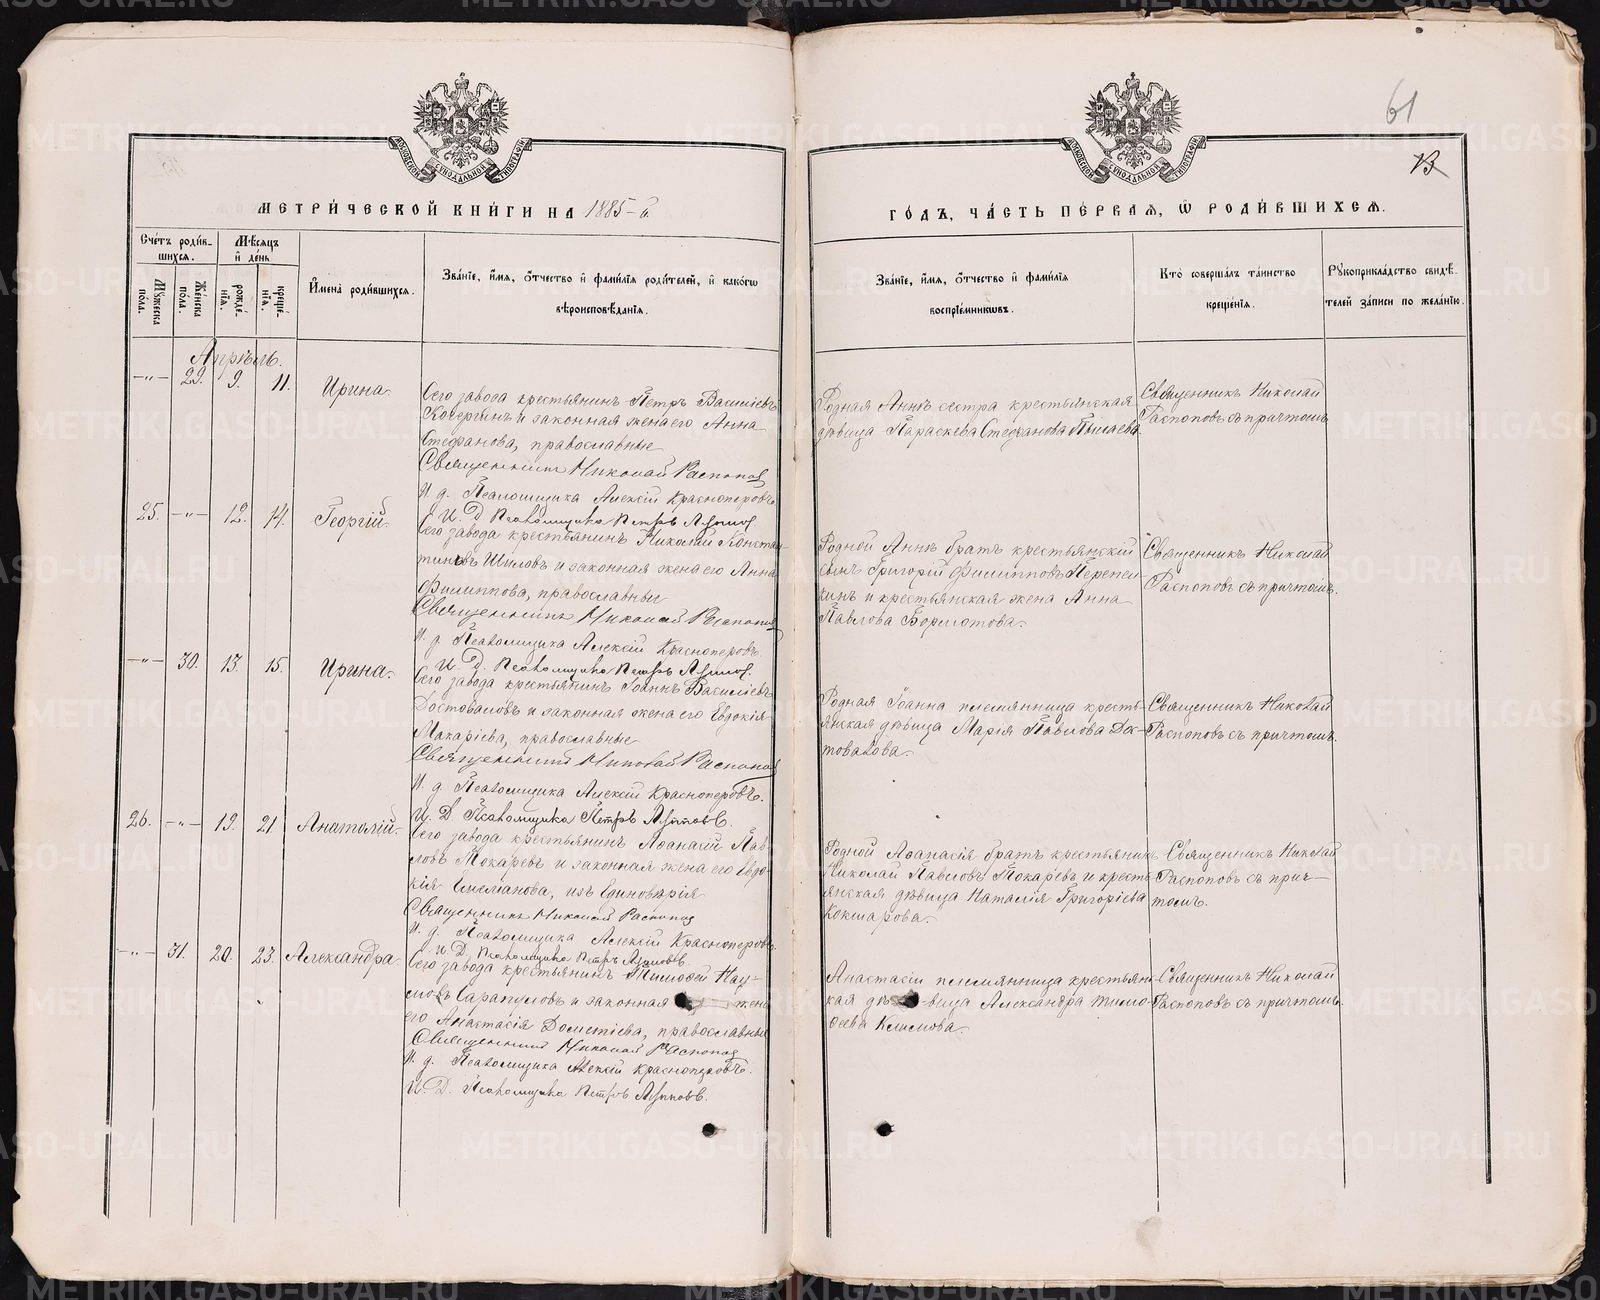 61
13
МЕТРИ́ЧЕСКОЙ КНИ́ГИ НА 1885-й
ГО́ДЪ, ЧА́СТЬ ПЕ́РВАЯ, Ѡ РОДИ́ВШИХСѦ.
Сче́тъ роди́в-
шихсѧ.
Мѣ́сѧцъ
и҆ де́нь
Му́жеска по́ла.
Же́нска по́ла.
рожде́-
нїѧ.
креще́-
нїѧ.
И҆мена̀ роди́вшихсѧ.
Зва́нїе, и҆́мѧ, ѻ҆́тчество и҆ фами́лїѧ роди́телей, и҆ како́гѡ
вѣроисповѣ́данїѧ.
Зва́нїе, и҆́мѧ, ѻ҆́тчество и҆ фами́лїѧ
воспрїе́мникѡвъ.
Кто̀ соверша́лъ та́инство
креще́нїѧ.
Рꙋкоприкла́дство свидѣ́-
телей за́писи по жела́нїю.
Апрѣль.
—"— 29. 9. 11. Ирина.
Сего завода крестьянинъ Петръ Василіевъ
Каверзинъ и законная жена его Анна
Стефанова, православные
Священникъ Николай Распопов
И. д. Псаломщика Алексій Красноперовъ
И. Д Псаломщика Петръ
Родная Аннѣ сестра крестьянская
дѣвица Параскева Стефанова
Священникъ Николай
Распоповъ съ причтомъ
25. —"— 12. 14. Георгій.
Сего завода крестьянинъ Николай Констан-
тиновъ Шиловъ и законная жена его Анна
Филиппова, православные
Священникъ Николай Распопов
И. д. Псаломщика Алексій Красноперовъ
И. Д. Псаломщика Петръ
Родной Аннѣ братъ крестьянскій
сынъ Григорій Филипповъ Перепел-
кинъ и крестьянская жена Анна
Павлова Бормотова.
Священникъ Николай
Распоповъ съ причтомъ.
—"— 30. 13. 15. Ирина.
Сего завода крестьянинъ Іоаннъ Василіевъ
Достоваловъ и законная жена его Евдокія
Макаріева, православные
Священникъ Николай Распопов
И. д. Псаломщика Алексій Красноперовъ.
И. Д Псаломщика Петръ
Родная Іоанна племянница кресть-
янская дѣвица Марія Павлова Дос-
товалова.
Священникъ Николай
Распоповъ съ причтомъ.
26. —"— 19. 21 Анатолій.
Сего завода крестьянинъ Аѳанасій Пав-
ловъ Токаревъ и законная жена его Евдо-
кія , изъ Единовѣрія
Священникъ Николай Распопов
И. д. Псаломщика Алексій Красноперовъ
И. Д. Псаломщика Петръ
Родной Аѳанасія братъ крестьянинъ
Николай Павловъ Токаревъ и кресть-
янская дѣвица Наталія Григоріева
Кокшарова.
Священникъ Николай
Распоповъ съ прич-
томъ.
—"— 31. 20. 23. Александра.
Сего завода крестьянинъ Тимоѳей Нау-
мовъ Сарапуловъ и законная жена
его Анастасія Дометіева, православные
Священникъ Николай Распопов
И. д. Псаломщика Алексій Красноперовъ.
И. Д. Псаломщика Петръ
Анастасіи племянница крестьян-
ская дѣвица Александра Тимо-
ѳеева Климова.
Священникъ Николай
Распоповъ съ причтомъ.
METRIKI.GASO-URAL.RU